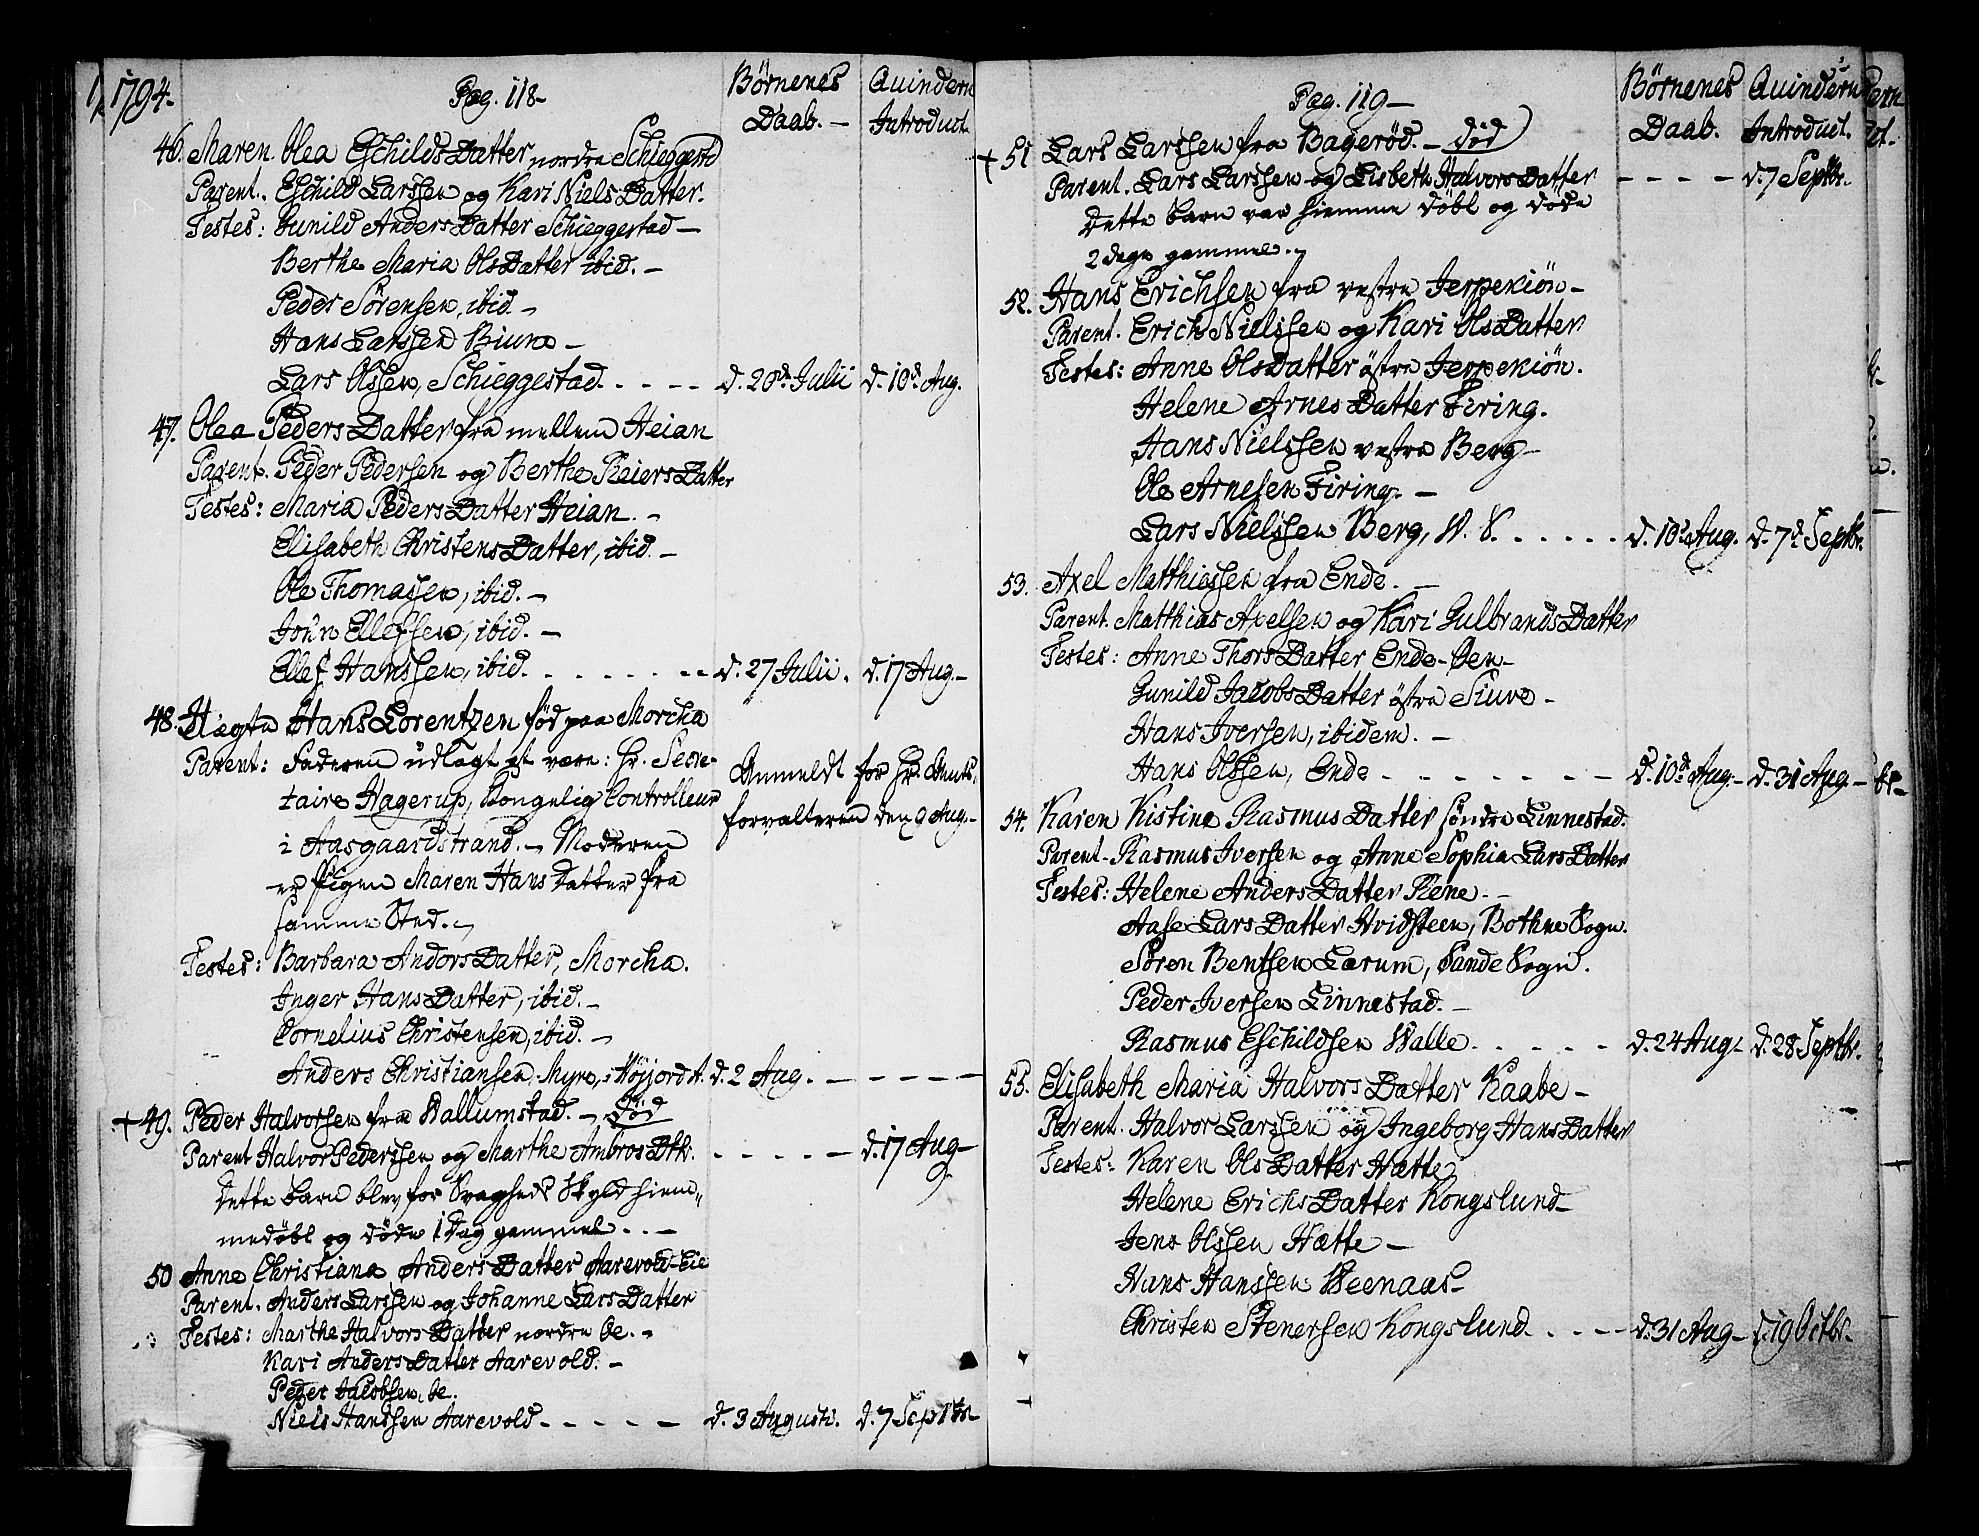 1794.
Pag. 118-
Börnenes Daab. -
Quindern Introduct.
46. Maren Olea Eschilds Datter nordre Schieggerød
Parent. Eschild Larssen og Kari Niels Datter.
Testes: Gunild Anders Datter Schieggestad -
Berthe Maria Ols Datter ibid. -
Peder Sörensen, ibid. -
Hans Larssen Biune -
Lars Olssen, Schieggestad. - - - - d. 20de Julii d. 10de Aug.
47. Olea Peders Datter fra mellem Heian
Parent. Peder Pedersen og Berthe Reiers Datter
Testes: Maria Peders Datter Heian. -
Elisabeth Christens Datter, ibid. -
Ole Thomassen, ibid. -
Joun Ellefsen, ibid. -
Ellef Hanssen, ibid. - - - - - - - d. 27 Julii. d. 17 Aug. -
48. Uægte Hans Lorentzen fød paa Morcha
Parent: Faderen udlagt at være: Hr. Secre-
taire Hagerup, Kongelig Controlleur
i Aasgaardstrand. - Moderen
er Pigen Maren Hans Datter fra
samme Sted. -
Anmeldt for Hr. Amts-
forvalteren den 9 Aug. -
Testes: Barbara Anders Datter, Morcha.
Inger Hans Datter, ibid. -
Cornelius Christensen, ibid. -
Anders Christiansen Myre, Höjjord A. d. 2 Aug. - - - - -
+ 49. Peder Halvorsen fra Wallumstad. - Død
Parent Halvor Pederssen og Marthe Ambros Dtr. - - - - - d. 17 Aug -
Dette Barn blev for Svagheds Skyld hiem-
medöbt og döde 1 Dag gammel. . . -
50 Anne Christiana Anders Datter Aarevold-Eie
Parent. Anders Larssen og Johanne Lars Datter
Testes: Marthe Halvors Datter nordre Oe. -
Kari Anders Datter Aarevold. -
Peder Jacobsen, Oe.
Niels Hanssen Aarevold - - - - - d. 3 Augusti. d. 7 Septbr
Pag. 119 -
Börnenes Daab.
Quindern Introduct.
+ 51 Lars Larssen fra Bagerød. - død
Parent. Lars Larssen og Lisbeth Halvors Datter - - - - d. 7 Septbr.
Dette Barn var hiemme döbt og döde
2 Dage gammel. -
52. Hans Erichsen fra vestre Jerpekiön -
Parent. Erich Nielssen og Kari Ols Datter
Testes: Anne Ols Datter östre Jerpekiön.
Helene Arnes Datter Firing.
Hans Nielssen vestre Berg -
Ole Arnesen Firing. -
Lars Nielssen Berg, W. S. . . . . . d. 10de Aug. d. 7de Septbr.
53. Axel Matthiassen fra Ende. -
Parent. Matthias Axelsen og Kari Gulbrands Datter
Testes: Anne Thors Datter Ende-Oen -
Gunild Jacobs Datter östre Siuve -
Hans Iversen, ibidem. -
Hans Olssen, Ende - - - - - - - d. 10de Aug. - d. 31 Aug. -
54. Karen Kistine Rasmus Datter søndre Linnestad.
Parent. Rasmus Iversen og Anne Sophia Lars Datter
Testes: Helene Anders Datter Rene. -
Aase Lars Datter Hvidsteen, Bothne Sogn.
Sören Bentsen Lærum, Sande Sogn.
Peder Iversen Linnestad. -
Rasmus Eschildsen Walle. - - - - d. 24 Aug. - d. 28 Septbr.
55. Elisabeth Maria Halvors Datter Kaabe -
Parent. Halvor Larssen og Ingeborg Hans Datter
Testes: Karen Ols Datter Hætte
Helene Erichs Datter Kongslund -
Jens Olssen Hætte -
Hans Hanssen Weenaas -
Christen Stenersen Kongslund. - - - d. 31 Aug - d. 19 Octbr. -